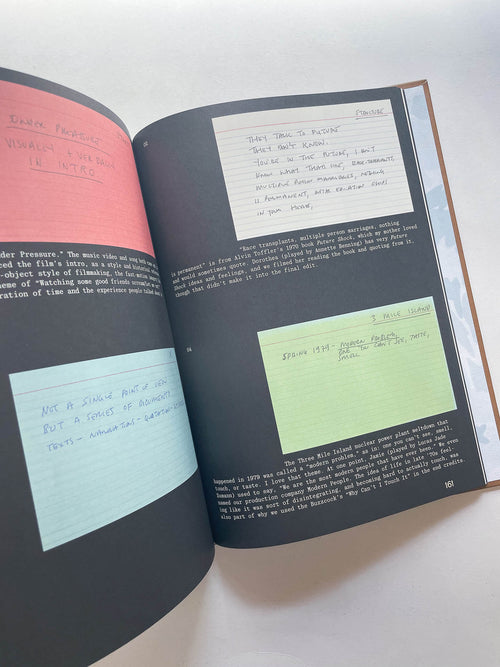 UNDER PRESSURE
VISUALLY + VERBALLY
IN INTRO
der Pressure." The music video and song
ced the film's intro, as a style and historical
-object style of filmmaking, the fast motion
heme of "Watching some good friends
ration of time and the experience people talked
NOT A SINGLE POINT OF VIEW
BUT A SERIES OF DOCUMENTS
TEXTS - NARRATIONS - QUOTATIONS
STRUCTURE
THEY TALK TO FUTURE
THEY DON'T KNOW.
YOU'RE IN THE FUTURE, I DON'T
KNOW WHAT THAT'S LIKE, RACE TRANSPLANTS,
MULTIPLE PERSON MARRIAGES, NOTHING
IS PERMANENT,
IN YOUR HOUSE,
"Race transplants, multiple person marriages, nothing
is permanent" is from Alvin Toffler's 1970 book Future Shock, which my mother loved
and would sometimes quote. Dorothea (played by Annette Benning) has very Future
Shock ideas and feelings, and we filmed her reading the book and quoting from it,
though that didn't make it into the final edit.
04
3 MILE ISLAND
SPRING 1979 - MODERN PROBLEM,
ONE YOU CAN'T SEE, TASTE,
SMELL
The Three Mile Island nuclear power plant meltdown that
happened in 1979 was called a "modern problem," as in: one you can't see, smell,
touch, or taste. I love that theme. At one point, Jamie (played by Lucas Jade
Zumann) used to say, "We are the most modern people that have ever been." We even
named our production company Modern People. The idea of life in late '70s feel-
ing like it was sort of disintegrating, and becoming hard to actually touch, was
also part of why we used the Buzzcock's "Why Can't I Touch It" in the end credits.
161